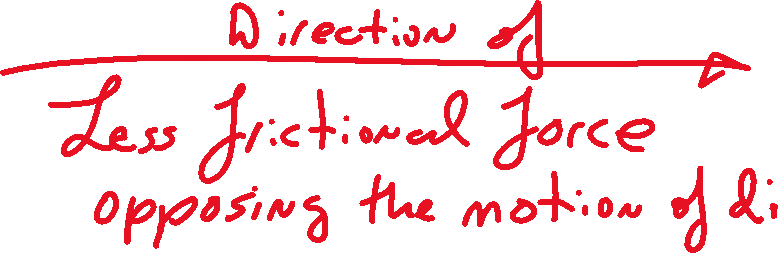 Direction of
Less frictional force
opposing the motion of di